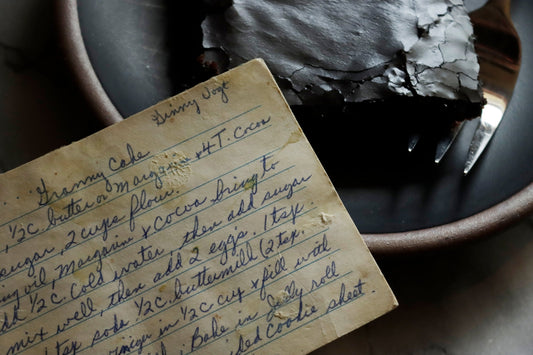 Ginny Vogt
Granny Cake
1/2 C. butter or Margarine & 4 T. Cocoa
sugar, 2 cups flour
oil, Margarine & Cocoa bring to
1/2 C. Cold water, then add sugar
mix well, then add 2 eggs, 1 tsp.
tsp soda 1/2 C. buttermill (2 tsp.
in 1/2 C. cup & fill with
Bake in Jelly roll
cookie sheet.